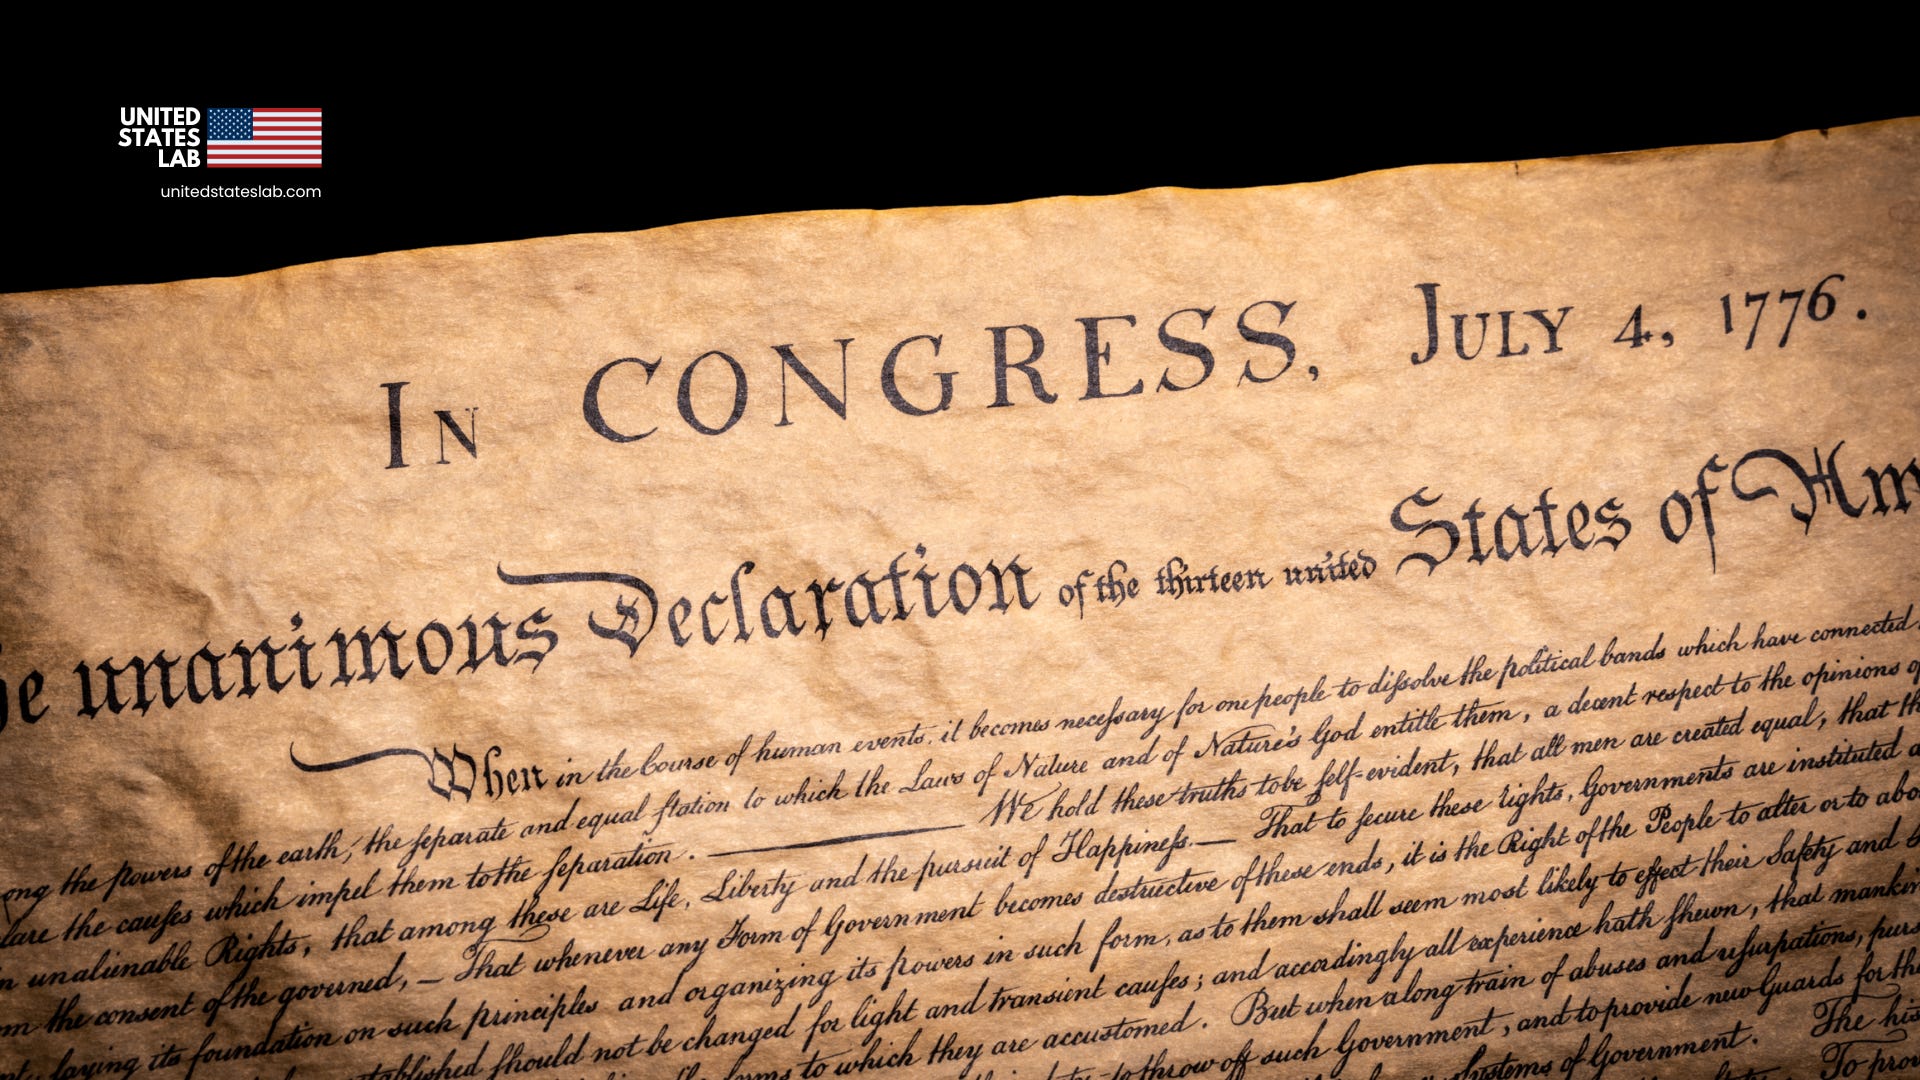 UNITED
STATES
LAB
unitedstateslab.com
In CONGRESS, July 4, 1776.
he unanimous Declaration of the thirteen united States of Am
When in the Course of human events, it becomes neceſsary for one people to diſsolve the political bands which have connected
ong the powers of the earth, the ſeparate and equal ſtation to which the Laws of Nature and of Nature's God entitle them, a decent respect to the opinions of
lare the cauſes which impel them to the ſeparation. We hold these truths to be ſelf-evident, that all men are created equal, that th
n unalienable Rights, that among these are Life, Liberty and the pursuit of Happineſs.— That to ſecure these rights, Governments are instituted a
om the consent of the governed, — That whenever any Form of Government becomes destructive of these ends, it is the Right of the People to alter or to abo
nt, laying its foundation on such principles and organizing its powers in such form, as to them shall seem most likely to effect their Safety and
established ſhould not be changed for light and transient cauſes; and accordingly all experience hath ſhewn, that mankin
forms to which they are accustomed. But when a long train of abuses and uſurpations, purs
to throw off such Government, and to provide new Guards for the
Systems of Government. The his
To prov